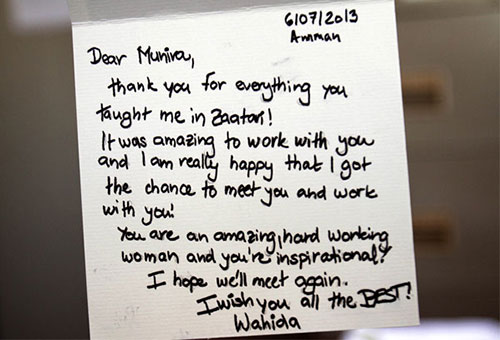 6/07/2013
Amman
Dear Munira,
thank you for everything you
taught me in Zaatari!
It was amazing to work with you
and I am really happy that I got
the chance to meet you and work
with you!
You are an amazing, hard working
woman and you're inspirational!
I hope we'll meet again.
I wish you all the BEST!
Wahida